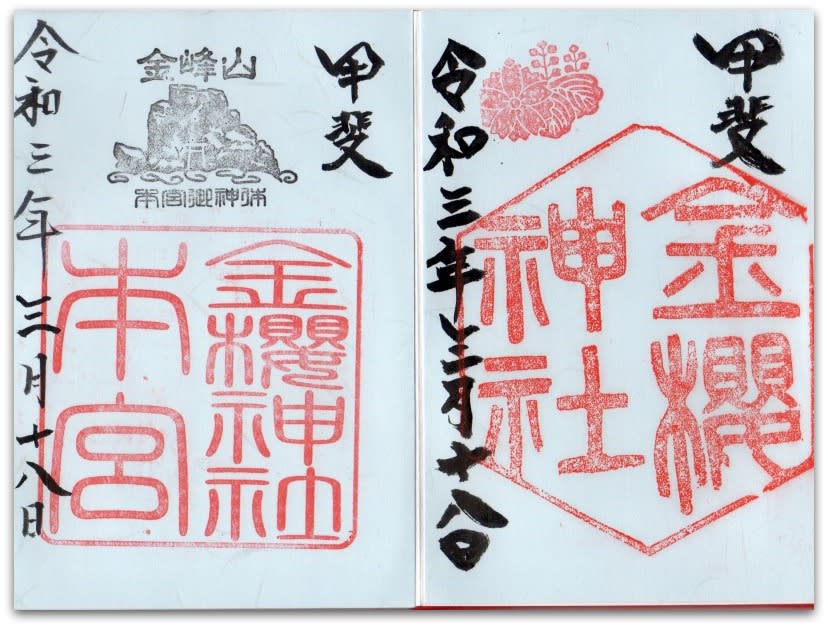 甲斐
金櫻
神社
令和三年三月十八日
甲斐
金峰山
本宮御神体
金櫻神社
本宮
令和三年三月十八日